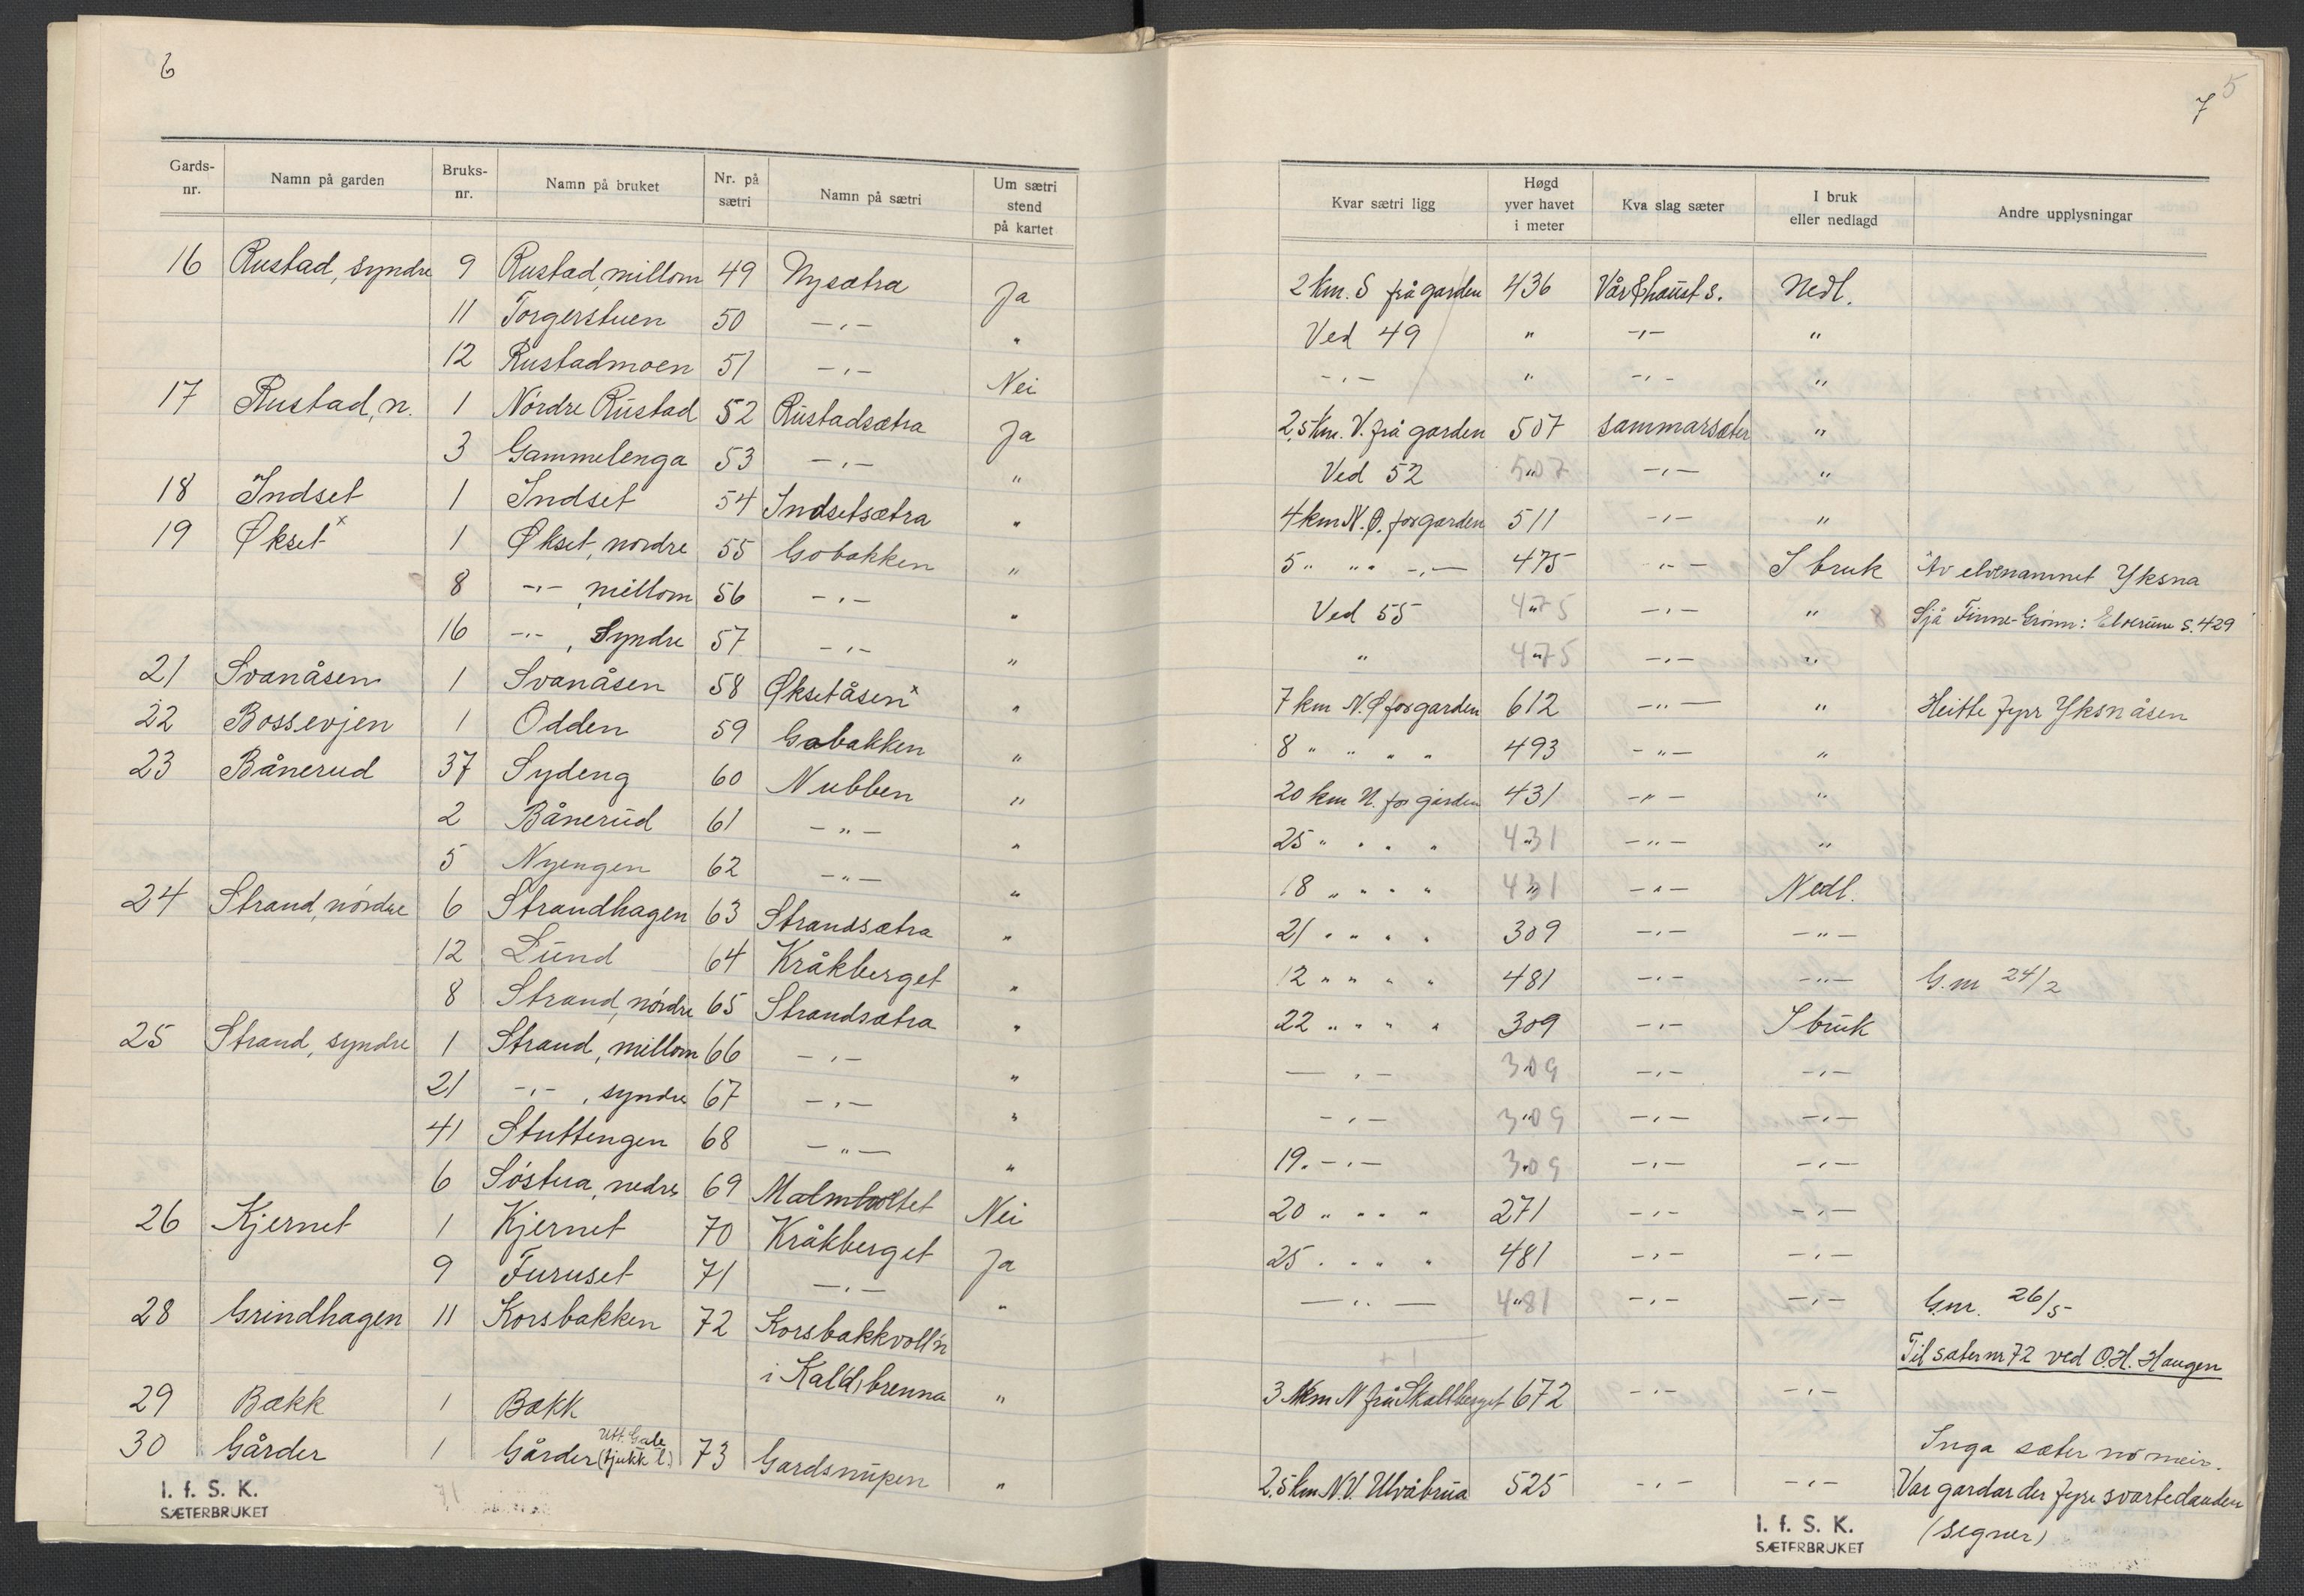 6
Gards-nr. | Namn på garden | Bruks-nr. | Namn på bruket | Nr. på sætri | Namn på sætri | Um sætri stend på kartet
16 | Rustad, syndre | 9 | Rustad, millom | 49 | Nysætra | Ja
11 | Torgerstuen | 50 | -"- | "
12 | Rustadmoen | 51 | -"- | Nei
17 | Rustad, n. | 1 | Nordre Rustad | 52 | Rustadsætra | Ja
3 | Gammelenga | 53 | -"- | "
18 | Indset | 1 | Indset | 54 | Indsetsætra | "
19 | Økset x | 1 | Økset, nordre | 55 | Gobakken | "
8 | -"-, millom | 56 | -"- | "
16 | -"-, Syndre | 57 | -"- | "
21 | Svanåsen | 1 | Svanåsen | 58 | Øksetåsen x | "
22 | Bossevjen | 1 | Odden | 59 | Gabakken | "
23 | Bånerud | 37 | Sydeng | 60 | Nubben | "
2 | Bånerud | 61 | -"- | "
5 | Nyengen | 62 | -"- | "
24 | Strand, nordre | 6 | Strandhagen | 63 | Strandsætra | "
12 | Lund | 64 | Kråkberget | "
8 | Strand, nordre | 65 | Strandsætra | "
25 | Strand, syndre | 1 | Strand, millom | 66 | -"- | "
21 | -"-, syndre | 67 | -"- | "
41 | Stuttengen | 68 | -"- | "
6 | Sóstua, nedre | 69 | Nei
26 | Kjernet | 1 | Kjernet | 70 | Kråkberget | Ja
9 | Furuset | 71 | -"- | "
28 | Grindhagen | 11 | Korsbakken | 72 | Korsbakkvoll'n
i Kal(d)brenna | "
29 | Bækk | 1 | Bækk
30 | Gårder | 1 | Gårder (tjukk l.) | 73 | Gardsnupen | "
I. f. S. K.
SÆTERBRUKET
5
7
Kvar sætri ligg | Høgd yver havet i meter | Kva slag sæter | I bruk eller nedlagd | Andre upplysningar
2 km. S frå garden | 436 | Vår & haust s. | Nedl.
Ved 49 | " | -"- | "
-"- | " | -"- | "
2,5 km. V. frå garden | 507 | sommarsæter | "
Ved 52 | 507 | -"- | "
4 km N. Ø. for garden | 511 | -"- | "
5 " " " -"- | 475 | -"- | I bruk | Av elvenamnet Yksna
Ved 55 | 475 | -"- | " | Sjå Finne-Grønn: Elverum s. 429
" | 475 | -"- | "
7 km N. Ø for garden | 612 | -"- | " | Heitte fyrr Yksnåsen
8 " " " " | 493 | -"- | "
20 km N. for garden | 431 | -"- | "
25 " " " " | 431 | -"- | "
18 " " " " | 431 | -"- | Nedl.
21 " " " " | 309 | -"- | -"-
12 " " " " | 481 | -"- | -"- | G.nr 24/2
22 " " " " | 309 | -"- | I bruk
-"- | 309 | -"- | -"-
-"- | 309 | -"- | -"-
19. -"- | 309 | -"- | -"-
20 " " " " | 271 | -"- | -"-
25 " " " " | 481 | -"- | -"-
-"- | 481 | -"- | -"- | G.nr. 26/5
Til sæter nr 72 ved O. H. Haugen
3 km N frå Skallberget | 672 | -"- | -"-
Inga sæter no meir.
2,5 km N.V. Ulvåbrua | 525 | -"- | -"- | Var gardar der fyre svartedauden
(segner)
I. f. S. K.
SÆTERBRUKET